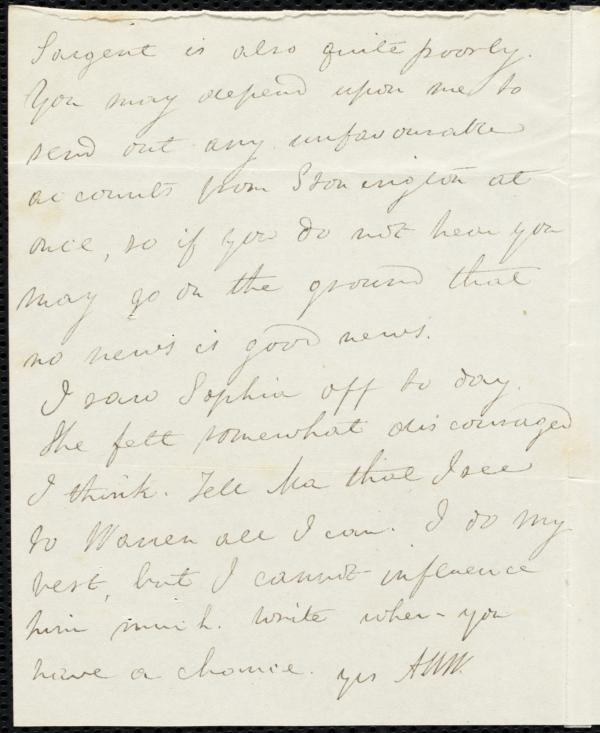 Sargent is also quite poorly.
You may depend upon me to
send out any unfavourable
accounts from Stonington at
once, so if you do not hear you
may go on the ground that
no news is good news.
I saw Sophia off to day.
She felt somewhat discouraged
I think. Tell Ma that I see
to Warren all I can. I do my
best, but I cannot influence
him much. Write when you
have a chance. yrs